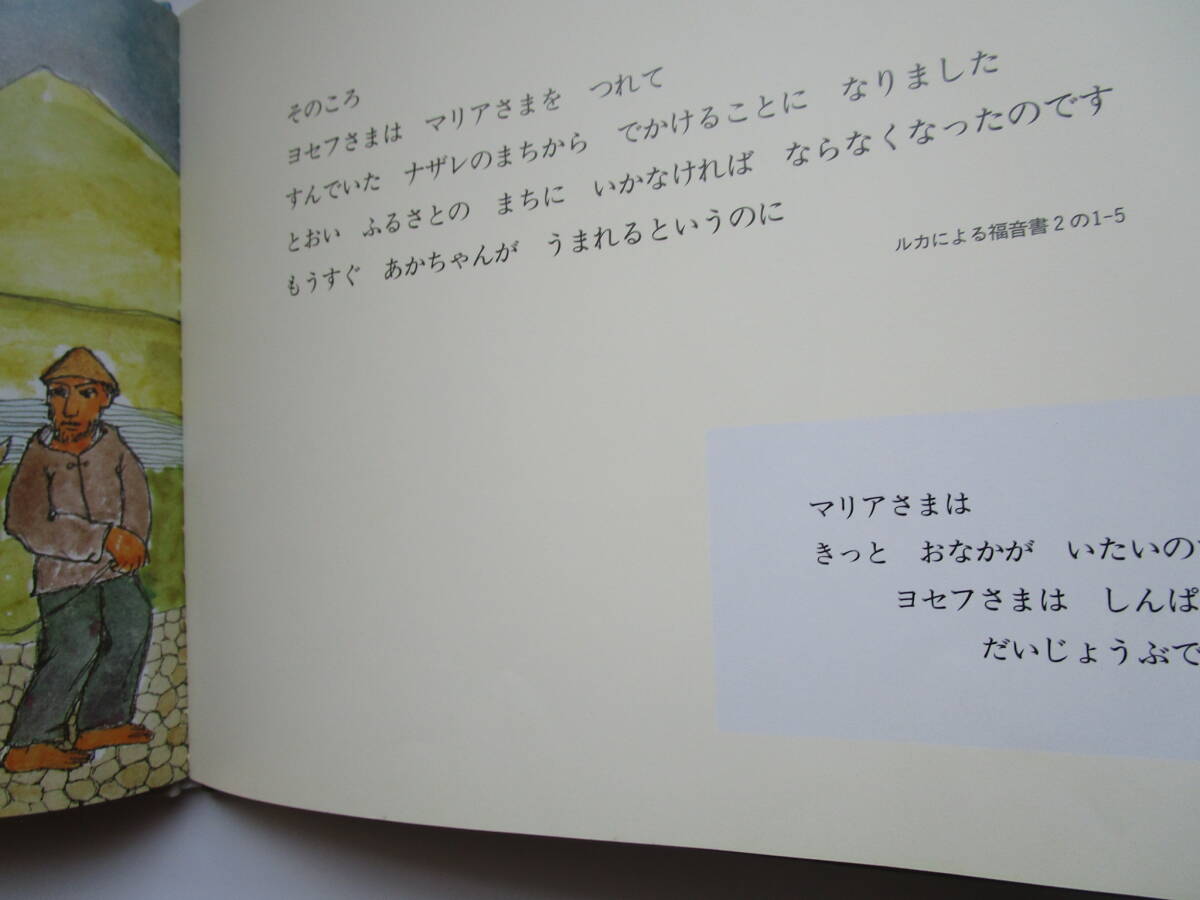 そのころ
ヨセフさまは　マリアさまを　つれて
すんでいた　ナザレのまちから　でかけることに　なりました
とおい　ふるさとの　まちに　いかなければ　ならなくなったのです
もうすぐ　あかちゃんが　うまれるというのに
ルカによる福音書2の1-5
マリアさまは
きっと　おなかが　いたいの
ヨセフさまは　しんぱ
だいじょうぶで